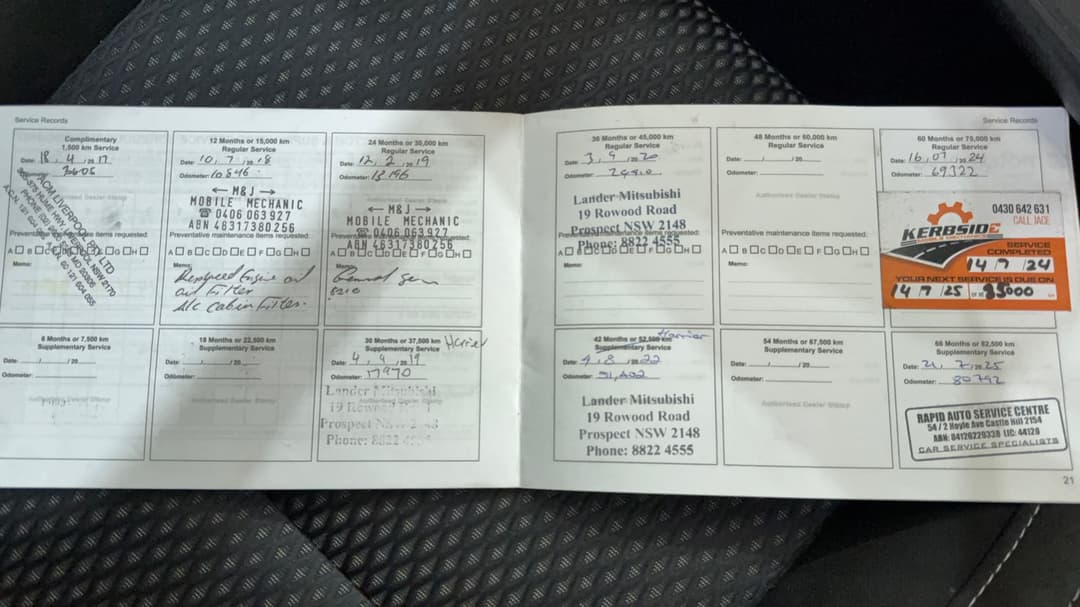 Service Records
Complimentary
1,500 km Service
Date: 18 / 4 / 20 17
Odometer: 3605
ACM LIVERPOOL PTY LTD
HUME HWY LIVERPOOL NSW 2170
Preventative maintenance items requested:
A B C D E F G H
Memo:
12 Months or 15,000 km
Regular Service
Date: 10 / 7 / 20 18
Odometer: 10846
← M&J →
MOBILE MECHANIC
☎ 0406 063 927
ABN 46317380256
Preventative maintenance items requested:
A B C D E F G H
Memo:
Engine oil
oil Filter
A/c Cabin Filter.
24 Months or 30,000 km
Regular Service
Date: 12 / 2 / 20 19
Odometer: 13196
← M&J →
MOBILE MECHANIC
☎ 0406 063 927
ABN 46317380256
A B C D E F G H
Memo:
6 Months or 7,500 km
Supplementary Service
Date: / / 20
Odometer:
Authorised Dealer Stamp
18 Months or 22,500 km
Supplementary Service
Date: / / 20
Odometer:
Authorised Dealer Stamp
30 Months or 37,500 km
Supplementary Service
Date: 4 / 9 / 20 19
Odometer: 17970
Lander Mitsubishi
19 Rowood
Prospect
Phone: 8822
Service Records
36 Months or 45,000 km
Regular Service
Date: 3 / 9 / 20 20
Odometer:
Lander Mitsubishi
19 Rowood Road
Prospect NSW 2148
Phone: 8822 4555
A B C D E F G H
Memo:
48 Months or 60,000 km
Regular Service
Date: / 20
Odometer:
Authorised Dealer Stamp
Preventative maintenance items requested:
A B C D E F G H
Memo:
60 Months or 75,000 km
Regular Service
Date: 16 / 07 / 20 24
Odometer: 69322
0430 642 631
CALL JACE
KERBSIDE
SERVICE
COMPLETED
14 / 7 / 24
YOUR NEXT SERVICE IS DUE ON
14 7 /25 or at 85000 km
42 Months or 52,500 km
Harrier
Supplementary Service
Date: 4 / 8 / 20 22
Odometer: 51,402
Lander Mitsubishi
19 Rowood Road
Prospect NSW 2148
Phone: 8822 4555
54 Months or 67,500 km
Supplementary Service
Date: / / 20
Odometer:
Authorised Dealer Stamp
66 Months or 82,500 km
Supplementary Service
Date: 21 / 7 / 20 25
Odometer: 80792
RAPID AUTO SERVICE CENTRE
54 / 2 Hoyle Ave Castle Hill 2154
ABN: 84126229338 LIC: 44128
CAR SERVICE SPECIALISTS
21